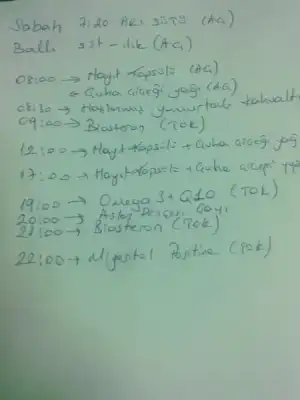 Sabah 7:20 Arı sütü (AÇ)
Ballı süt - ılık (AÇ)
08:00 → Hayıt Kapsülü (AÇ)
→ Çuha çiçeği yağı (AÇ)
08:30 → Haşlanmış yumurtalı kahvaltı
09:00 → Biosteron (TOK)
12:00 → Hayıt Kapsülü + Çuha çiçeği yağ
17:00 → Hayıt Kapsülü + Çuha çiçeği yağ
19:00 → Omega 3 + Q10 (TOK)
20:00 → Aslan Pençesi Çayı
21:00 → Biosteron (TOK)
22:00 → (TOK)